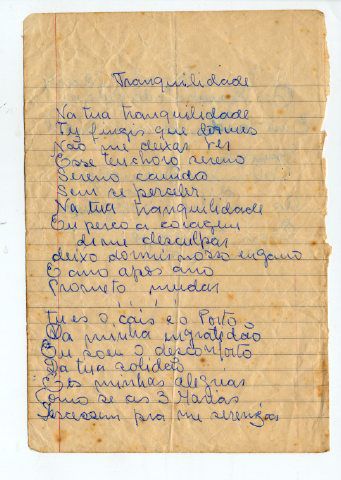 Tranquilidade
Na tua tranquilidade
Tu finges que dormes
Não me deixas ver
Esse teu choro sereno
Sereno caindo
Sem se perceber
Na tua tranquilidade
Eu perco a coragem
di me desculpar
deixo dormir nosso engano
E ano após ano
Prometo mudar
! ! ! ! !
tu es o cais e o Porto
Da minha ingratidão
Eu sou o desconforto
Da tua solidão
Es minhas alegrias
Como se as 3 Marias
pra me